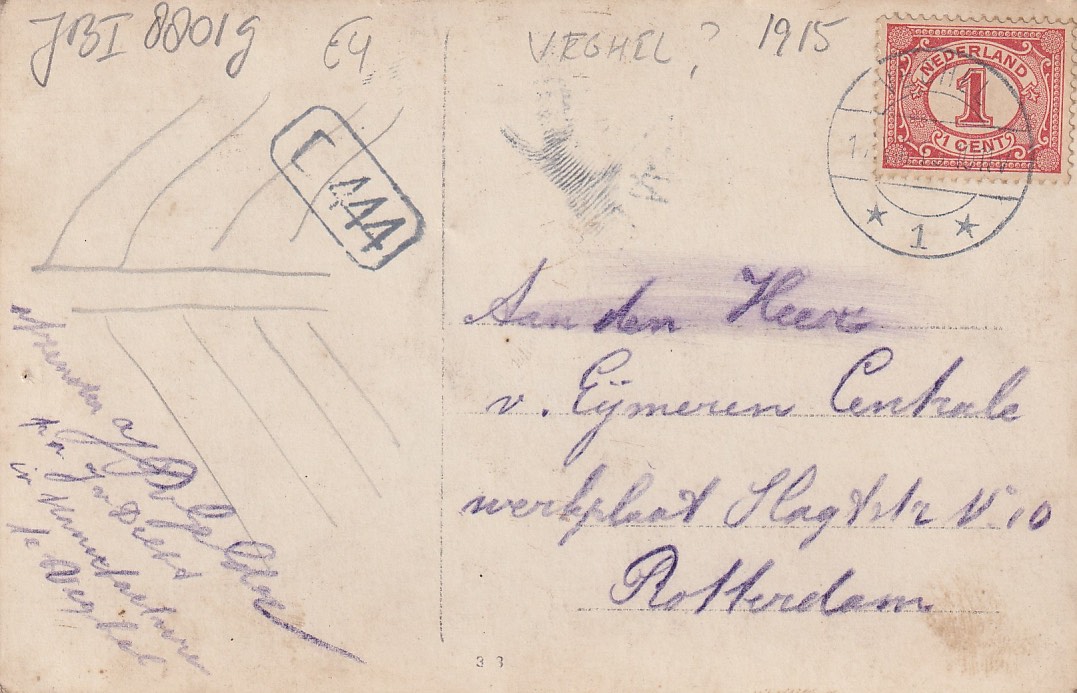 JBI 8801g
E4
VEGHEL ? 1915
NEDERLAND
1
1 CENT
C 444
1
Aan den Heer
v. Eijmeren Centrale
werkplaat Slagtstr No 10
Rotterdam
Afzender
te Veghel
3 3